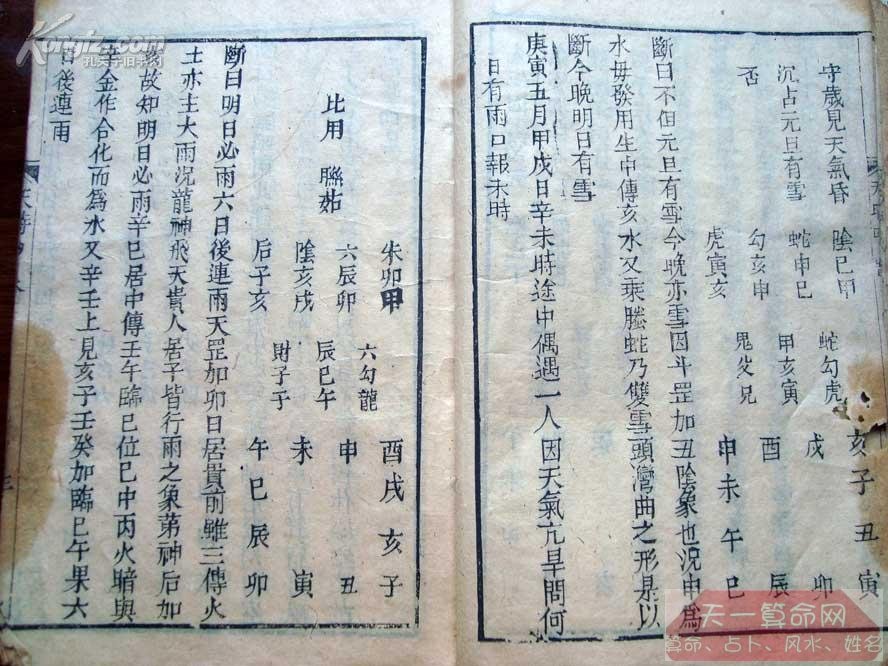 守歲見天氣昏 陰巳甲 蛇勾虎 亥子丑寅
沉占元旦有雪 蛇申巳 甲亥寅 戌 卯
勾亥申 酉 辰
否 虎寅亥 鬼父兄 申未午巳
斷曰不但元旦有雪今晚亦雪因斗罡加丑陰象也況申爲
水毋發用生中傳亥水又乘螣蛇乃雙雪頭灣曲之形是以
斷今晚明日有雪
庚寅五月甲戌日辛未時途中偶遇一人因天氣亢旱問何
日有雨口報未時
朱卯甲 六勾龍 酉戌亥子
六辰卯 辰巳午 申 丑
比用 聯茹 陰亥戌 未 寅
后子亥 財子子 午巳辰卯
斷曰明日必雨六日後連雨天罡加卯日居貴前雖三傳火
土亦主大雨況龍神飛天貴人居子皆行雨之象第神后加
故知明日必雨辛巳居中傳壬午臨巳位巳中丙火暗與
辛金作合化而爲水又辛壬上見亥子壬癸加臨巳午果六
日後連雨
天時
Kongfz.com
孔夫子旧书网
天一算命网
算命、占卜、风水、姓名